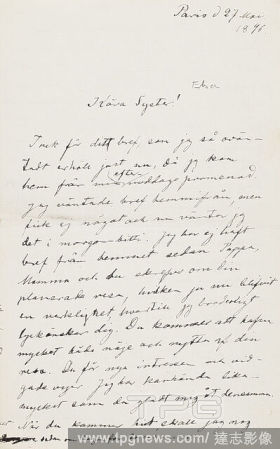 Paris d 27 Mai
1896
Elsa
Kära Syster!
Tack för ditt bref, som jag så ovän-
tadt erhöll just nu, då jag kom
hem från min efter middags promenad.
Jag väntade bref hemmifrån, men
fick ej något och nu väntar jag
det i morgon bitti. Jag har ej haft
bref från hemmet sedan Pappa,
Mamma och du skrefvo om din
planerade resa, hvilken ju nu blifvit
en verklighet hvartill jag broderligt
lyckönskar dig. Du kommer att hafva
mycket både nöje och nytta af den
resa. Du får nya intressen och vid-
gade vyer. Jag har kanhända lika-
mycket som du gladt mig åt densamma.
När du kommer hit skall jag nog
TPG
www.tpgnews.com / 達志影像